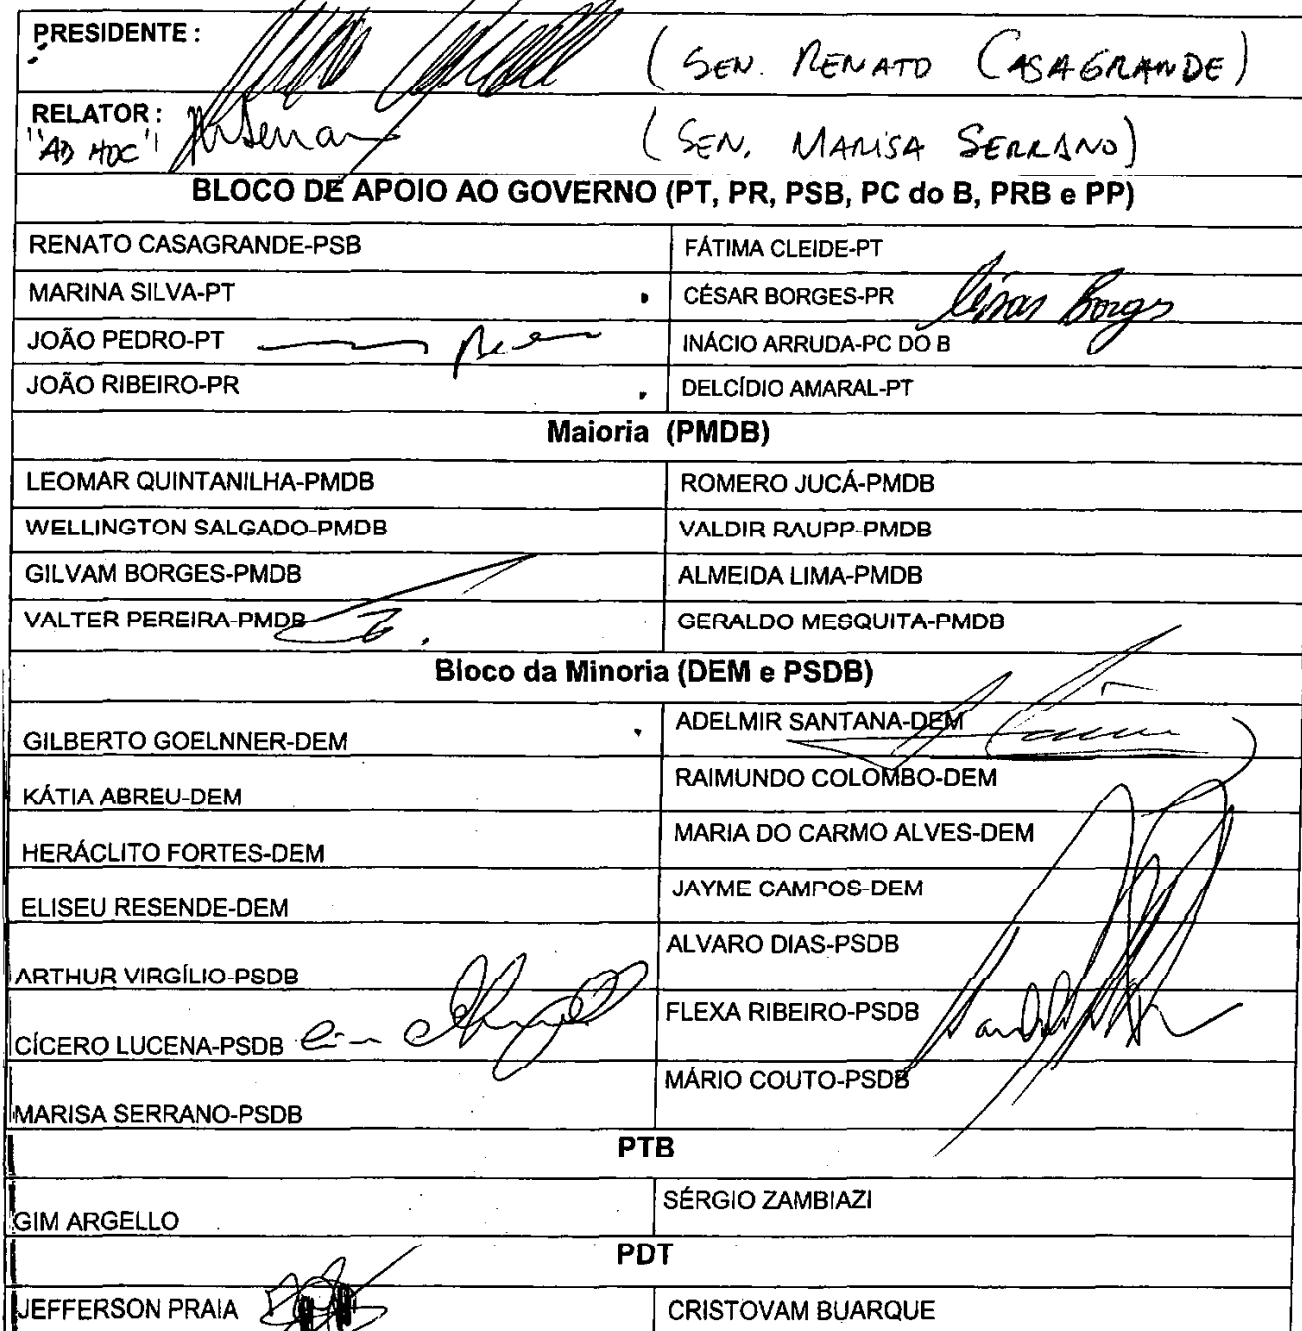 PRESIDENTE : (SEN. RENATO CASAGRANDE)
RELATOR : (SEN. MARISA SERRANO)
"AD HOC" MSerrano
BLOCO DE APOIO AO GOVERNO (PT, PR, PSB, PC do B, PRB e PP)
RENATO CASAGRANDE-PSB FÁTIMA CLEIDE-PT
MARINA SILVA-PT CÉSAR BORGES-PR César Borges
JOÃO PEDRO-PT INÁCIO ARRUDA-PC DO B
JOÃO RIBEIRO-PR DELCÍDIO AMARAL-PT
Maioria (PMDB)
LEOMAR QUINTANILHA-PMDB ROMERO JUCÁ-PMDB
WELLINGTON SALGADO-PMDB VALDIR RAUPP-PMDB
GILVAM BORGES-PMDB ALMEIDA LIMA-PMDB
VALTER PEREIRA-PMDB GERALDO MESQUITA-PMDB
Bloco da Minoria (DEM e PSDB)
GILBERTO GOELNNER-DEM ADELMIR SANTANA-DEM
KÁTIA ABREU-DEM RAIMUNDO COLOMBO-DEM
HERÁCLITO FORTES-DEM MARIA DO CARMO ALVES-DEM
ELISEU RESENDE-DEM JAYME CAMPOS-DEM
ARTHUR VIRGÍLIO-PSDB ALVARO DIAS-PSDB
CÍCERO LUCENA-PSDB FLEXA RIBEIRO-PSDB
MARISA SERRANO-PSDB MÁRIO COUTO-PSDB
PTB
GIM ARGELLO SÉRGIO ZAMBIAZI
PDT
JEFFERSON PRAIA CRISTOVAM BUARQUE